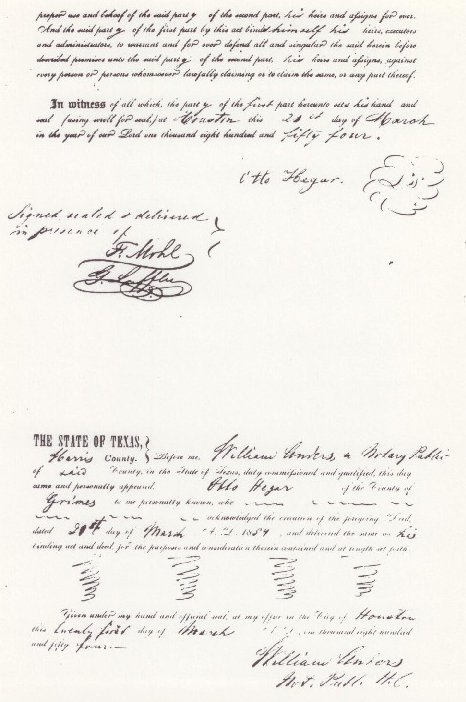 proper use and behoof of the said party of the second part, his heirs and assigns for ever.
And the said party of the first part by this act binds himself his heirs, executors
and administrators, to warrant and for ever defend all and singular the said herein before
described premises unto the said party of the second part, his heirs and assigns, against
every person or persons whomsoever lawfully claiming or to claim the same, or any part thereof.
In witness of all which, the party of the first part hereunto sets his hand and
seal (using scroll for seal,) at Houston this 21st day of March
in the year of our Lord one thousand eight hundred and fifty four.
Otto Hegar.
Signed sealed & delivered
in presence of
F. Mohl
G.
THE STATE OF TEXAS,
Harris County. Before me, William Anders, a Notary Public
of said County, in the State of Texas, duly commissioned and qualified, this day
came and personally appeared, Otto Hegar of the County of
Grimes to me personally known, who
acknowledged the execution of the foregoing Deed,
dated day of March A.D. 1854, and delivered the same as his
binding act and deed, for the purposes and consideration therein contained and at length set forth.
Given under my hand and official seal, at my office in the City of Houston
this twenty first day of March one thousand eight hundred
and fifty four
William Anders
Not. Publ. H.C.